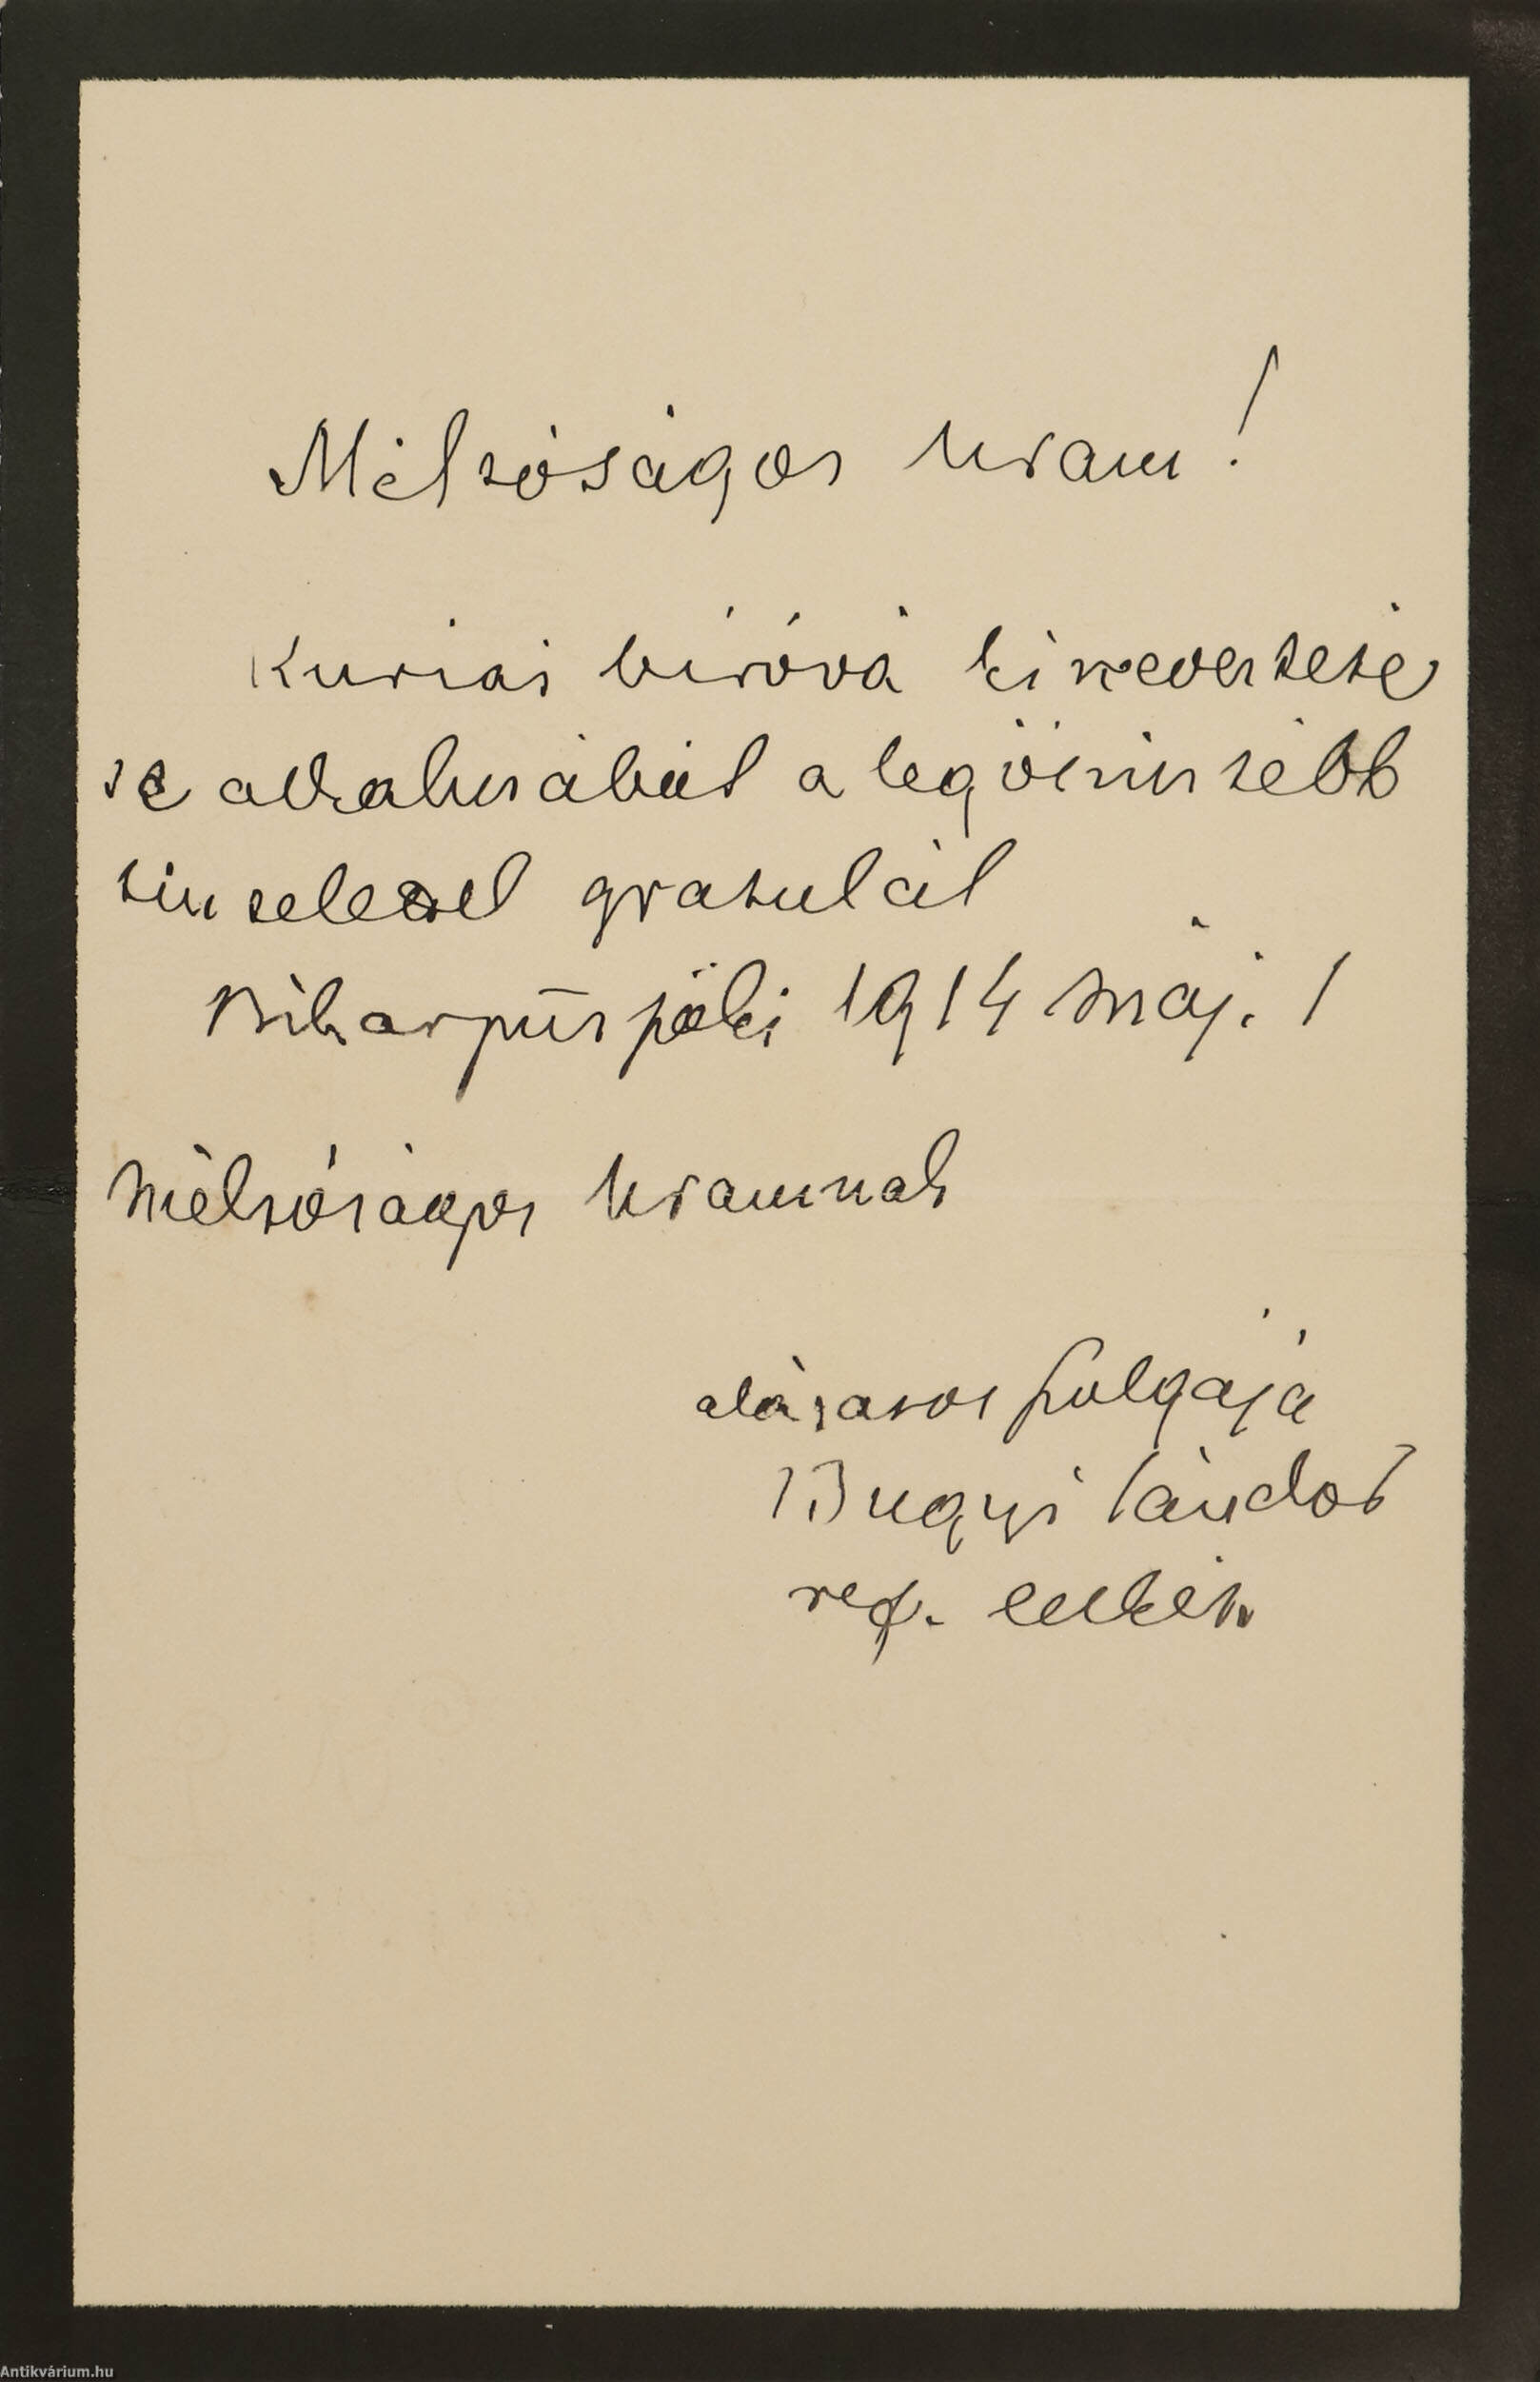 Méltóságos Uram!
Kuriai bíróvá kinevezteté
se alkalmából a legőszintébb
tisztelettel gratulál
Biharpüspöki 1914 máj. 1
Méltóságos Uramnak
alázatos szolgája
Bugyi Sándor
ref. lelkész
Antikvárium.hu